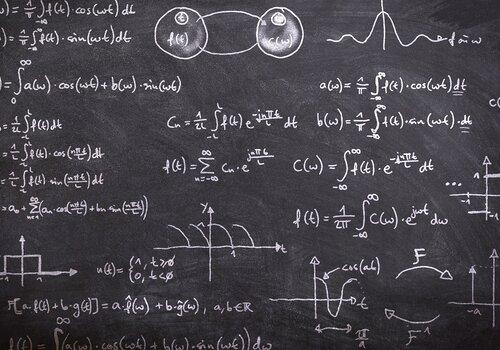 = 1/π ∫f(t)·cos(ωt)dt
= 1/π ∫f(t)·sin(ωt)dt
t
f(t)
ω
C(ω)
= ∫₀^∞ a(ω)·cos(ωt)+b(ω)·sin(ωt)
a(ω)=1/π ∫_{-∞}^{∞} f(t)·cos(ωt)dt
= 1/2L ∫f(t)dt
Cn = 1/2L ∫f(t)e^{-jnπt/L} dt
b(ω)=1/π ∫_{-∞}^{∞} f(t)·sin(ωt)·dt
= 1/L ∫f(t)·cos(nπt/L)dt
= 1/L ∫f(t)·sin(nπt/L)dt
f(t)=∑_{n=-∞}^{∞} Cn·e^{jnπt/L}
C(ω)=∫_{-∞}^{∞} f(t)·e^{-jnπt/L} dt
= a₀+∑_{n=1}^{∞}(an·cos(nπt/L)+bn·sin(nπt/L))
f(t)=1/2π ∫_{-∞}^{∞} C(ω)·e^{jωt} dω
...
1
-1
y
t
u(t)={1, t≥0
0, t<0
cos(ab)
t
π/a
F
F⁻¹
-1
F[a·f(t)+b·g(t)]=a·f̂(ω)+b·ĝ(ω), a,b∈ℝ
f(t)=∫^∞(a(ω)·cos(ωt)+b(ω)·sin(ωt))dω